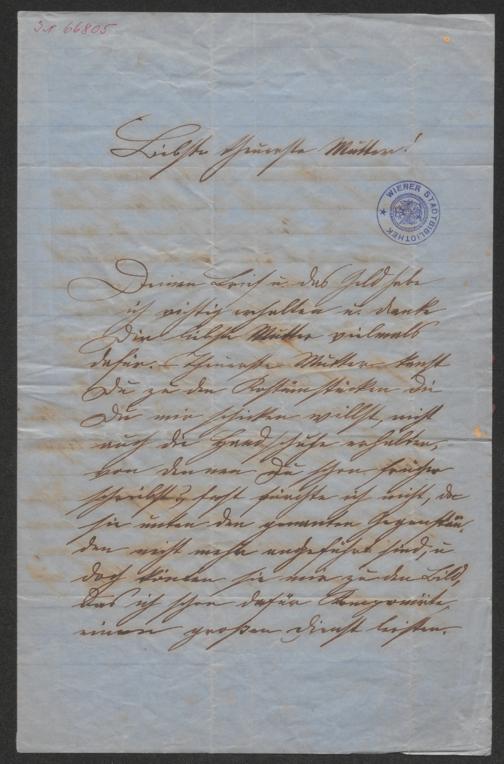 I.N. 66805
Liebste theuerste Mutter!
WIENER STADTBIBLIOTHEK
Deinen Brief u. das Geld habe
ich richtig erhalten u. danke
Dir liebste Mutter vielmals
dafür. Theuerste Mutter kanst
Du zu den Kostümstücken die
Du mir schicken willst, nicht
auch die Handschuhe erhalten,
von dennen Du schon früher
schriebst, fast fürchte ich nicht, da
sie unter den genanten Gegenstän-
den nicht mehr angeführt sind, u
doch könten sie mir zu den Bild,
das ich schon dafür komponirte,
einen großen Dienst leisten.